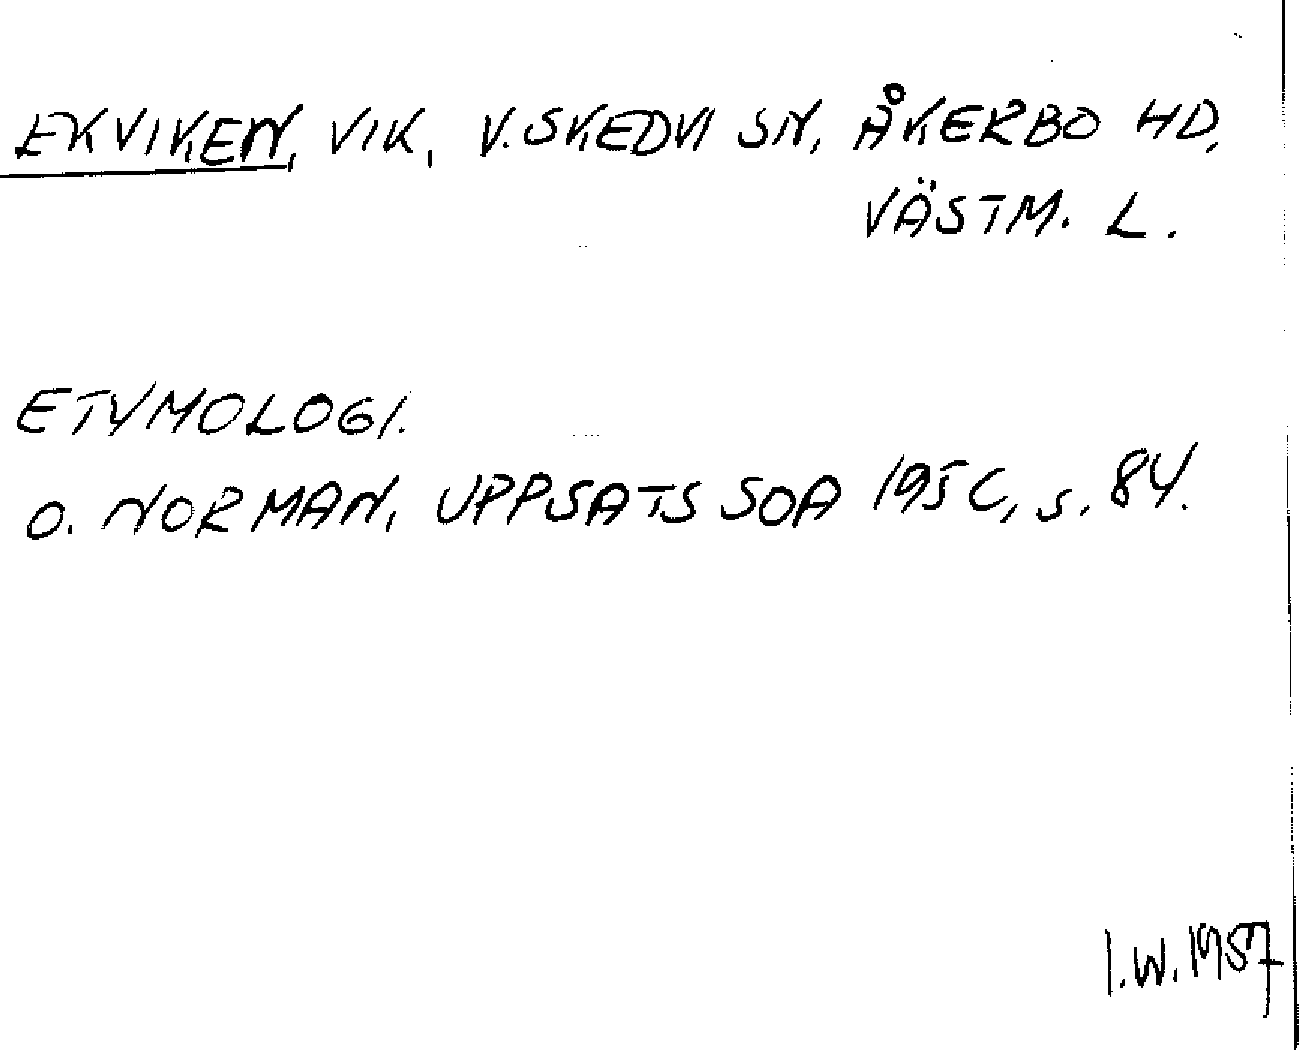 EKVIKEN, VIK, V. SKEDVI SN, ÅKERBO HD,
VÄSTM. L.
ETYMOLOGI.
O. NORMAN, UPPSATS SOA 1956, s. 84.
I.W. 1957